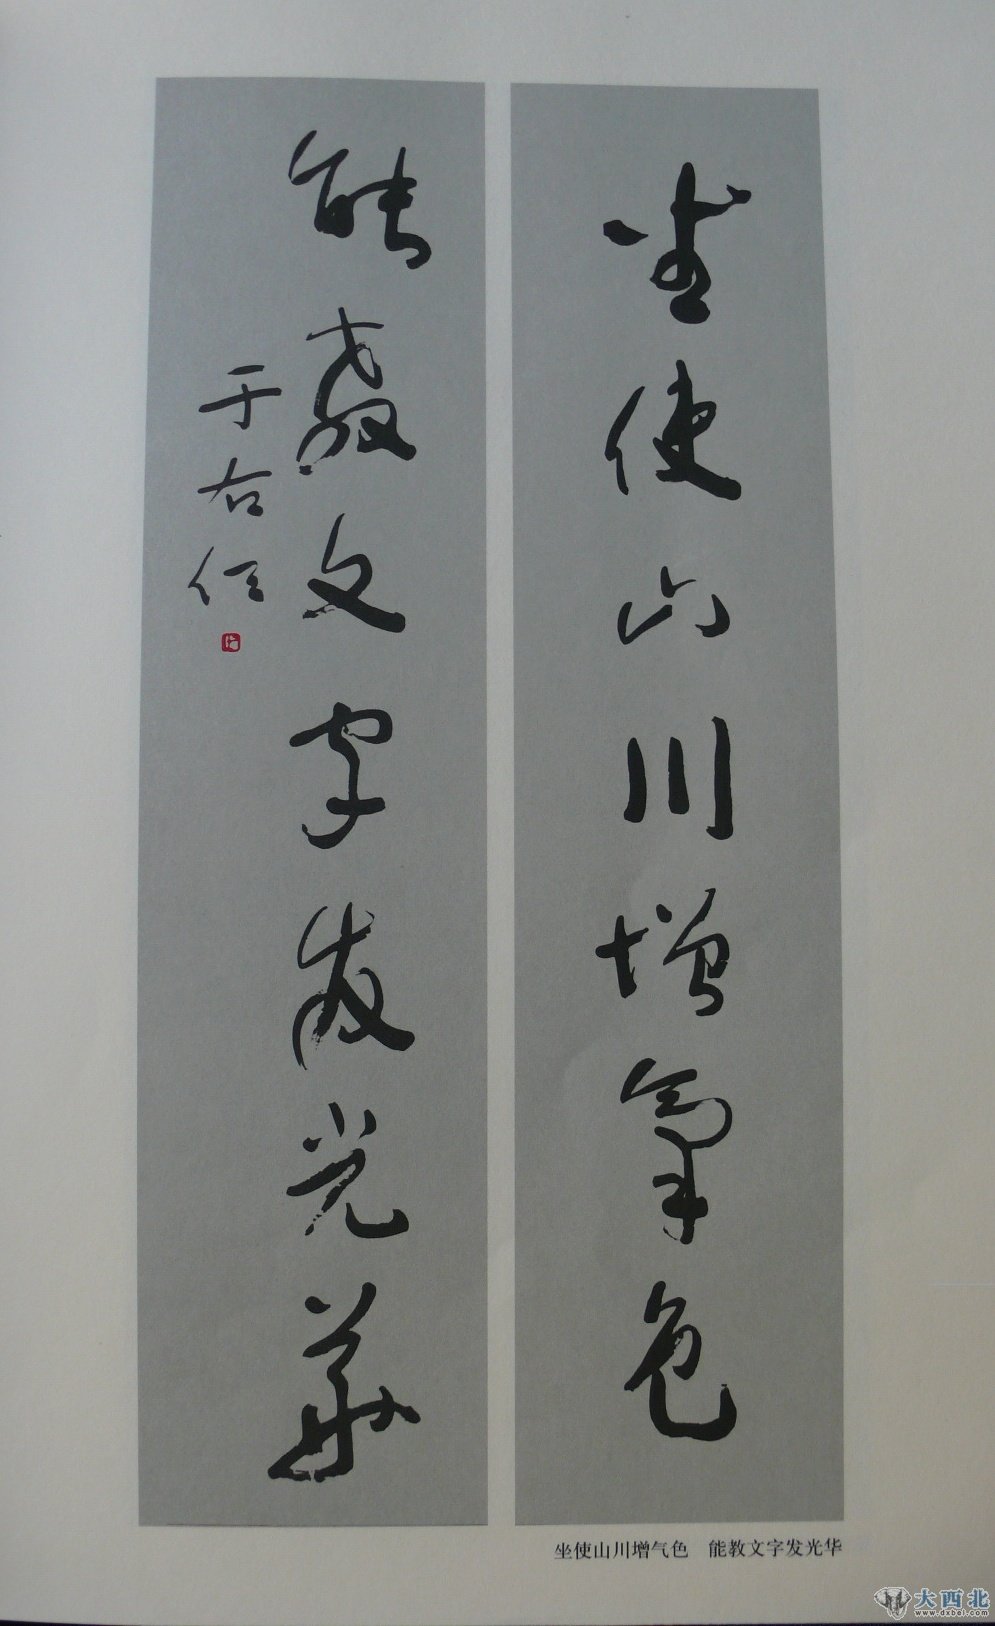 坐使山川增氣色
能教文字發光華
于右任
坐使山川增气色　能教文字发光华
大西北
www.dxbei.com